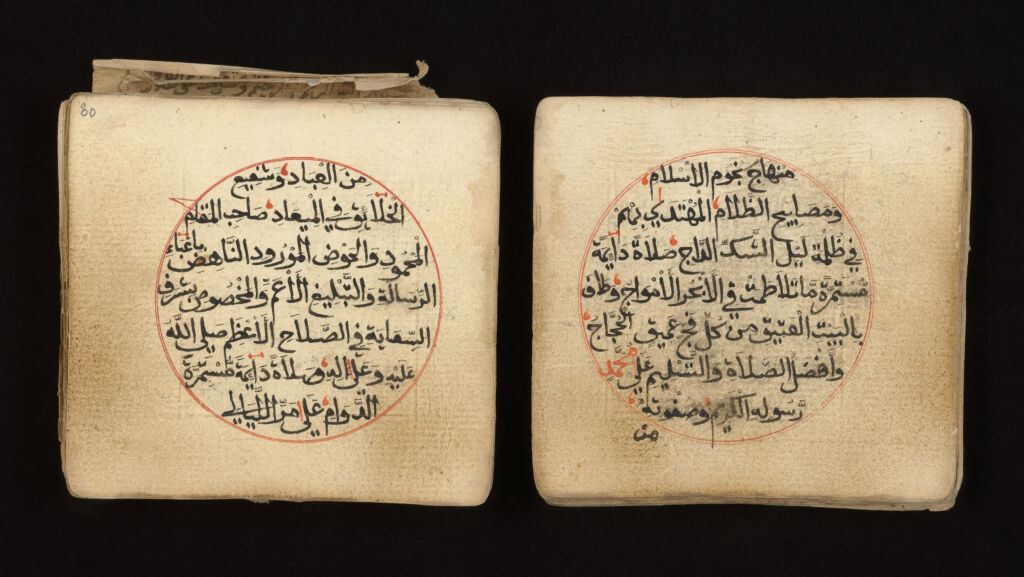 منهاج نجوم الاسلام
ومصابيح الظلام المهتدى بهم
في ظلمة ليل الشك الداج صلاة دايمة
مستمرة ما تلاطمت في الابحر الامواج وطاف
بالبيت العتيق من كل فج عميق الحجاج
وافضل الصلاة والتسليم على محمد
رسوله الكريم وصفوته
من
80
من العباد وشفيع
الخلائق في الميعاد صاحب المقام
المحمود والحوض المورود الناهض باعباء
الرسالة والتبليغ الاعم والمخصوص بشرف
السعاية في الصلاح الاعظم صلى الله
عليه وعلى اله صلاة دايمة مستمرة
الدوام على مر الليالي